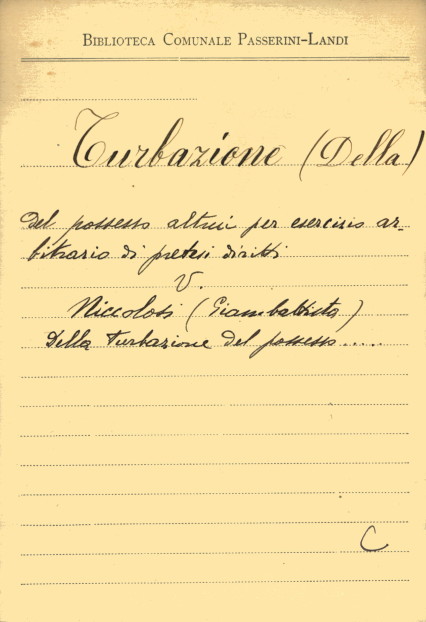 BIBLIOTECA COMUNALE PASSERINI-LANDI
Turbazione (Della)
del possesso altrui per esercizio ar-
bitrario di pretesi diritti
V.
Niccolosi (Giambattista)
Della Turbazione del possesso.....
C